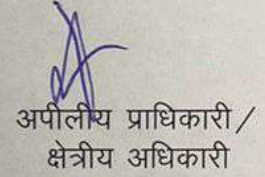 अपीलीय प्राधिकारी /
क्षेत्रीय अधिकारी